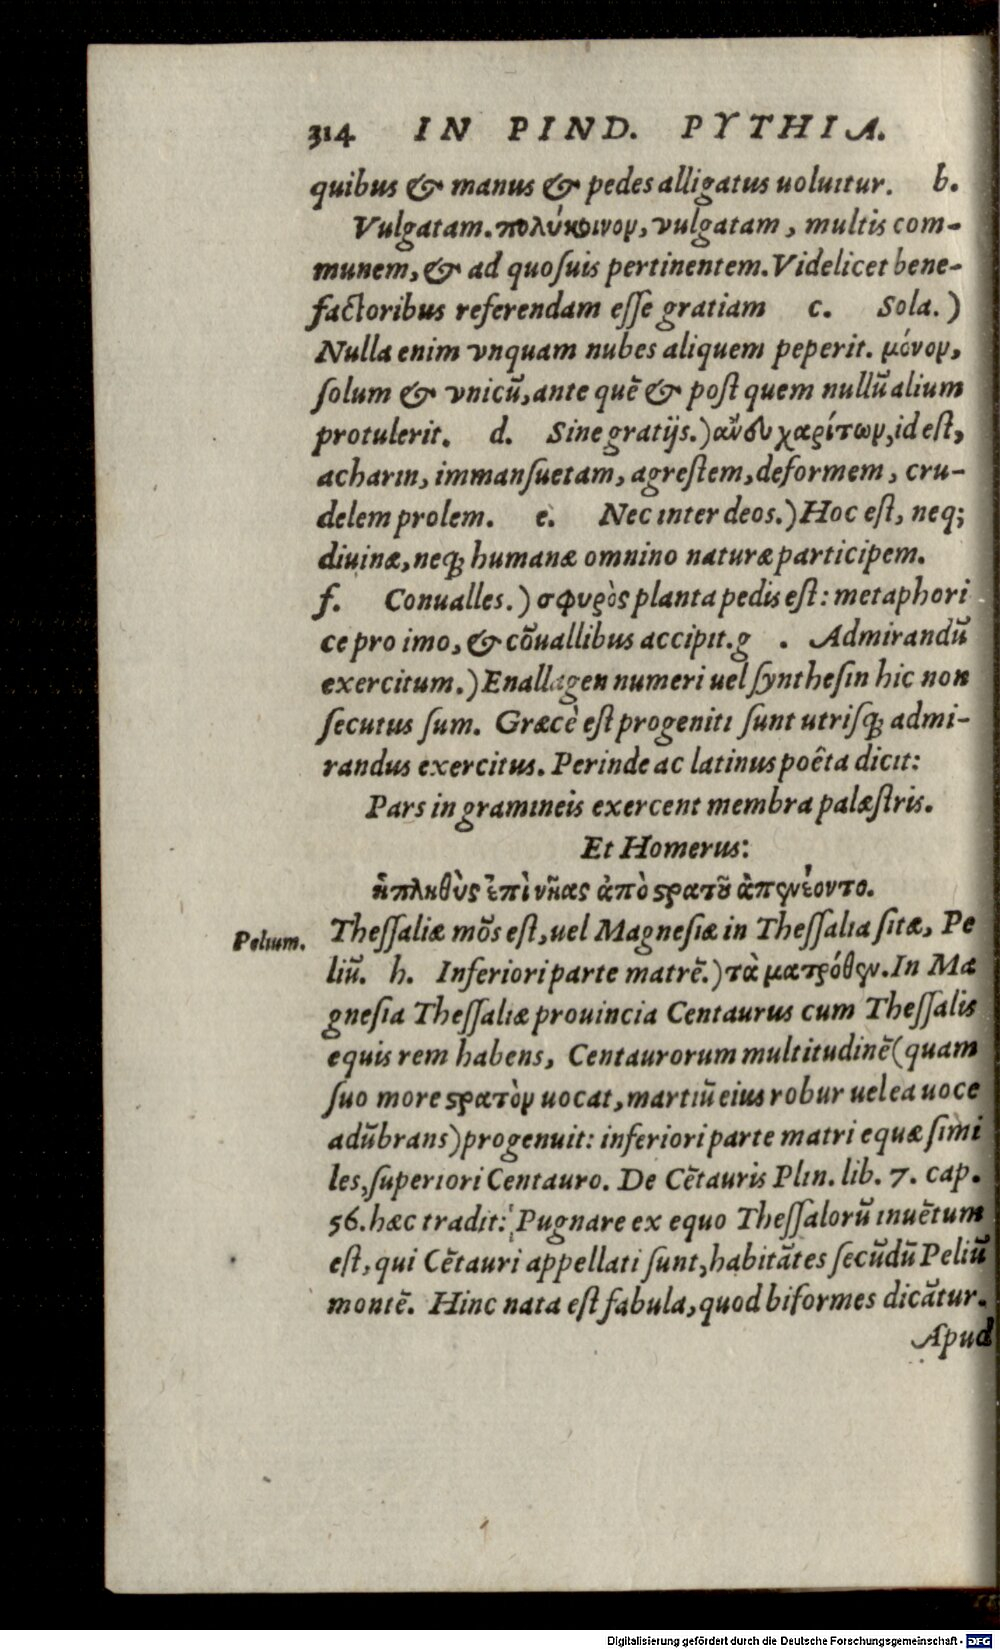 314 IN PIND. PYTHIA.
quibus & manus & pedes alligatus uoluitur. b.
Vulgatam. πολύκοινον, vulgatam, multis com-
munem, & ad quoſuis pertinentem. Videlicet bene-
factoribus referendam eſſe gratiam c. Sola.)
Nulla enim vnquam nubes aliquem peperit. μόνον,
ſolum & vnicũ, ante quẽ & poſt quem nullũ alium
protulerit. d. Sine gratijs.) ἄνευ χαρίτων, id eſt,
acharin, immanſuetam, agreſtem, deformem, cru-
delem prolem. e. Nec inter deos.) Hoc eſt, neq;
diuinæ, neq; humanæ omnino naturæ participem.
f. Conualles.) σφυρὸς planta pedis eſt: metaphori
ce pro imo, & cõuallibus accipit. g . Admirandũ
exercitum.) Enallagen numeri uel ſyntheſin hic non
ſecutus ſum. Græcè eſt progeniti ſunt utriſq; admi-
randus exercitus. Perinde ac latinus poêta dicit:
Pars in gramineis exercent membra palæſtris.
Et Homerus:
ἡ πληθὺς ἐπὶ νῆας ἀπὸ ϛρατοῦ ἀπονέοντο.
Pelium.
Theſſaliæ mõs eſt, uel Magneſiæ in Theſſalia ſitæ, Pe
liũ. h. Inferiori parte matrẽ.) τὰ ματρόθεν. In Ma
gneſia Theſſaliæ prouincia Centaurus cum Theſſalis
equis rem habens, Centaurorum multitudinẽ (quam
ſuo more ϛρατὸν uocat, martiũ eius robur uel ea uoce
adũbrans) progenuit: inferiori parte matri equæ ſimi
les, ſuperiori Centauro. De Cẽtauris Plin. lib. 7. cap.
56. hæc tradit: Pugnare ex equo Theſſalorũ inuẽtum
eſt, qui Cẽtauri appellati ſunt, habitãtes ſecũdũ Peliũ
montẽ. Hinc nata eſt fabula, quod biformes dicãtur.
Apud
Digitalisierung gefördert durch die Deutsche Forschungsgemeinschaft - DFG